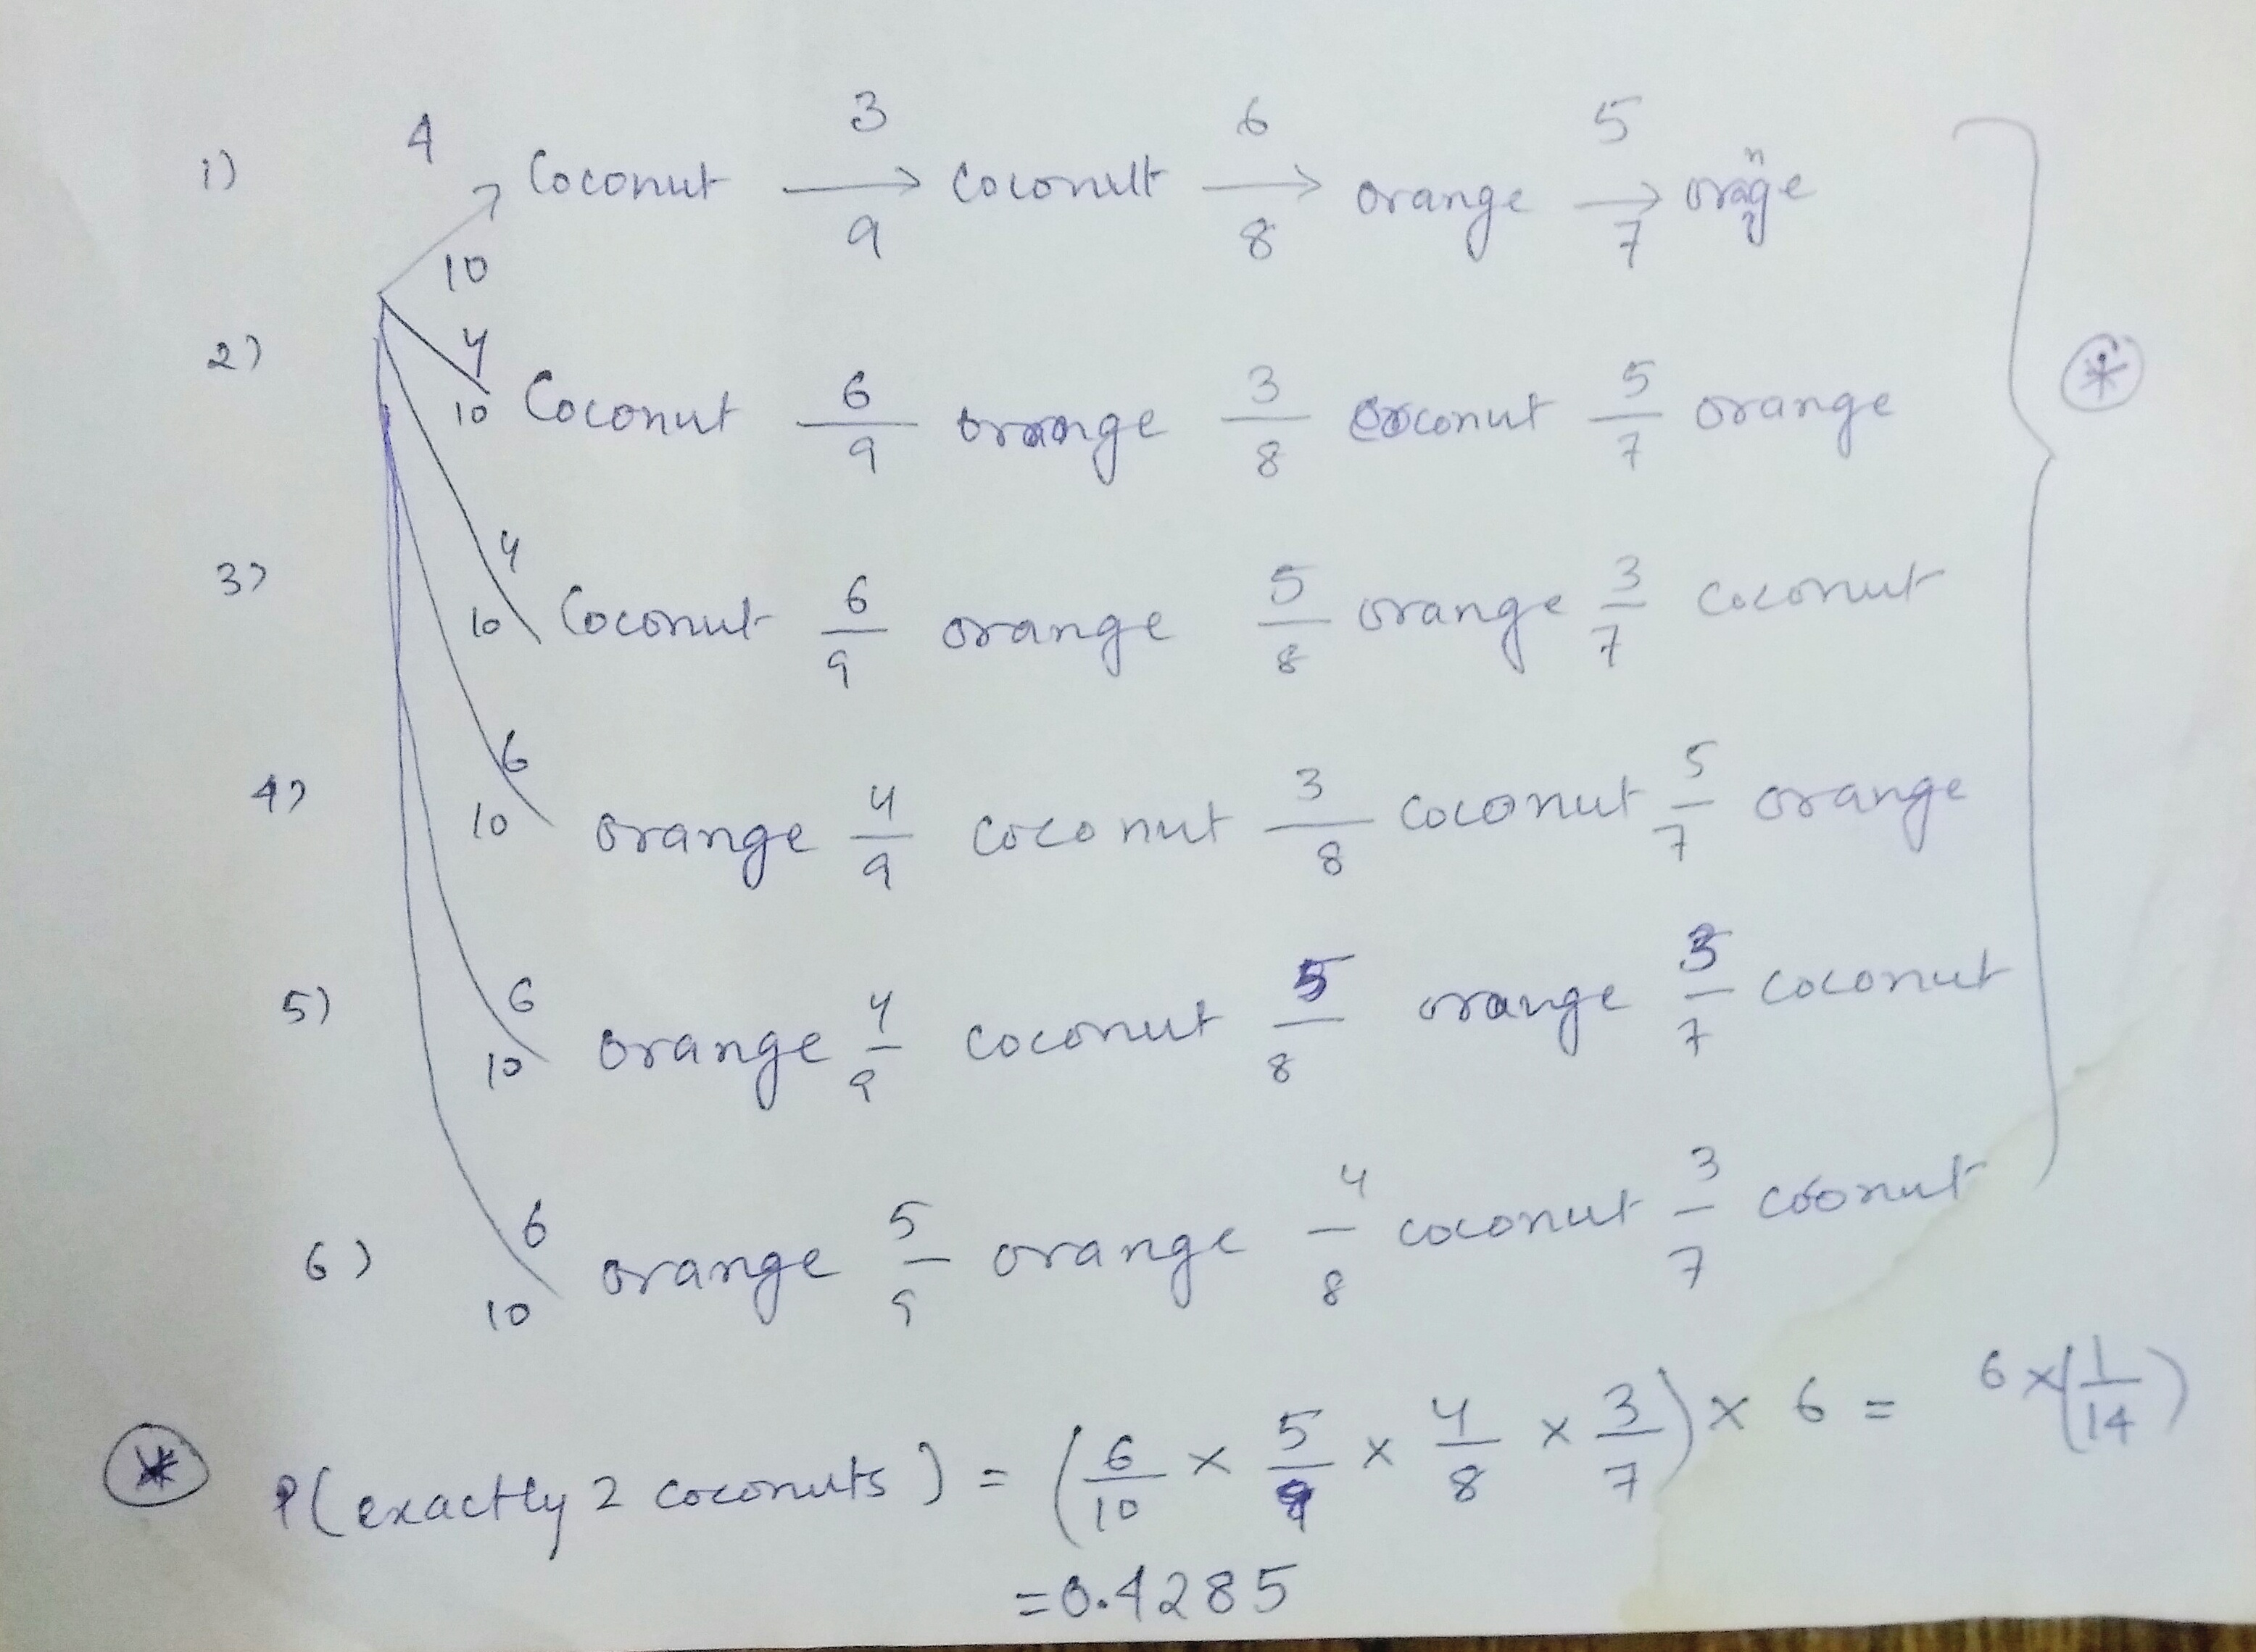 1) 4/10 Coconut 3/9 → coconutt 6/8 → orange 5/7 → orange
2) 4/10 Coconut 6/9 orange 3/8 coconut 5/7 orange
3) 4/10 Coconut 6/9 orange 5/8 orange 3/7 coconut
4) 6/10 orange 4/9 coconut 3/8 coconut 5/7 orange
5) 6/10 orange 4/9 coconut 5/8 orange 3/7 coconut
6) 6/10 orange 5/9 orange 4/8 coconut 3/7 coonut
* P(exactly 2 coconuts) = (6/10 × 5/9 × 4/8 × 3/7) × 6 = 6 × (1/14)
= 0.4285
*